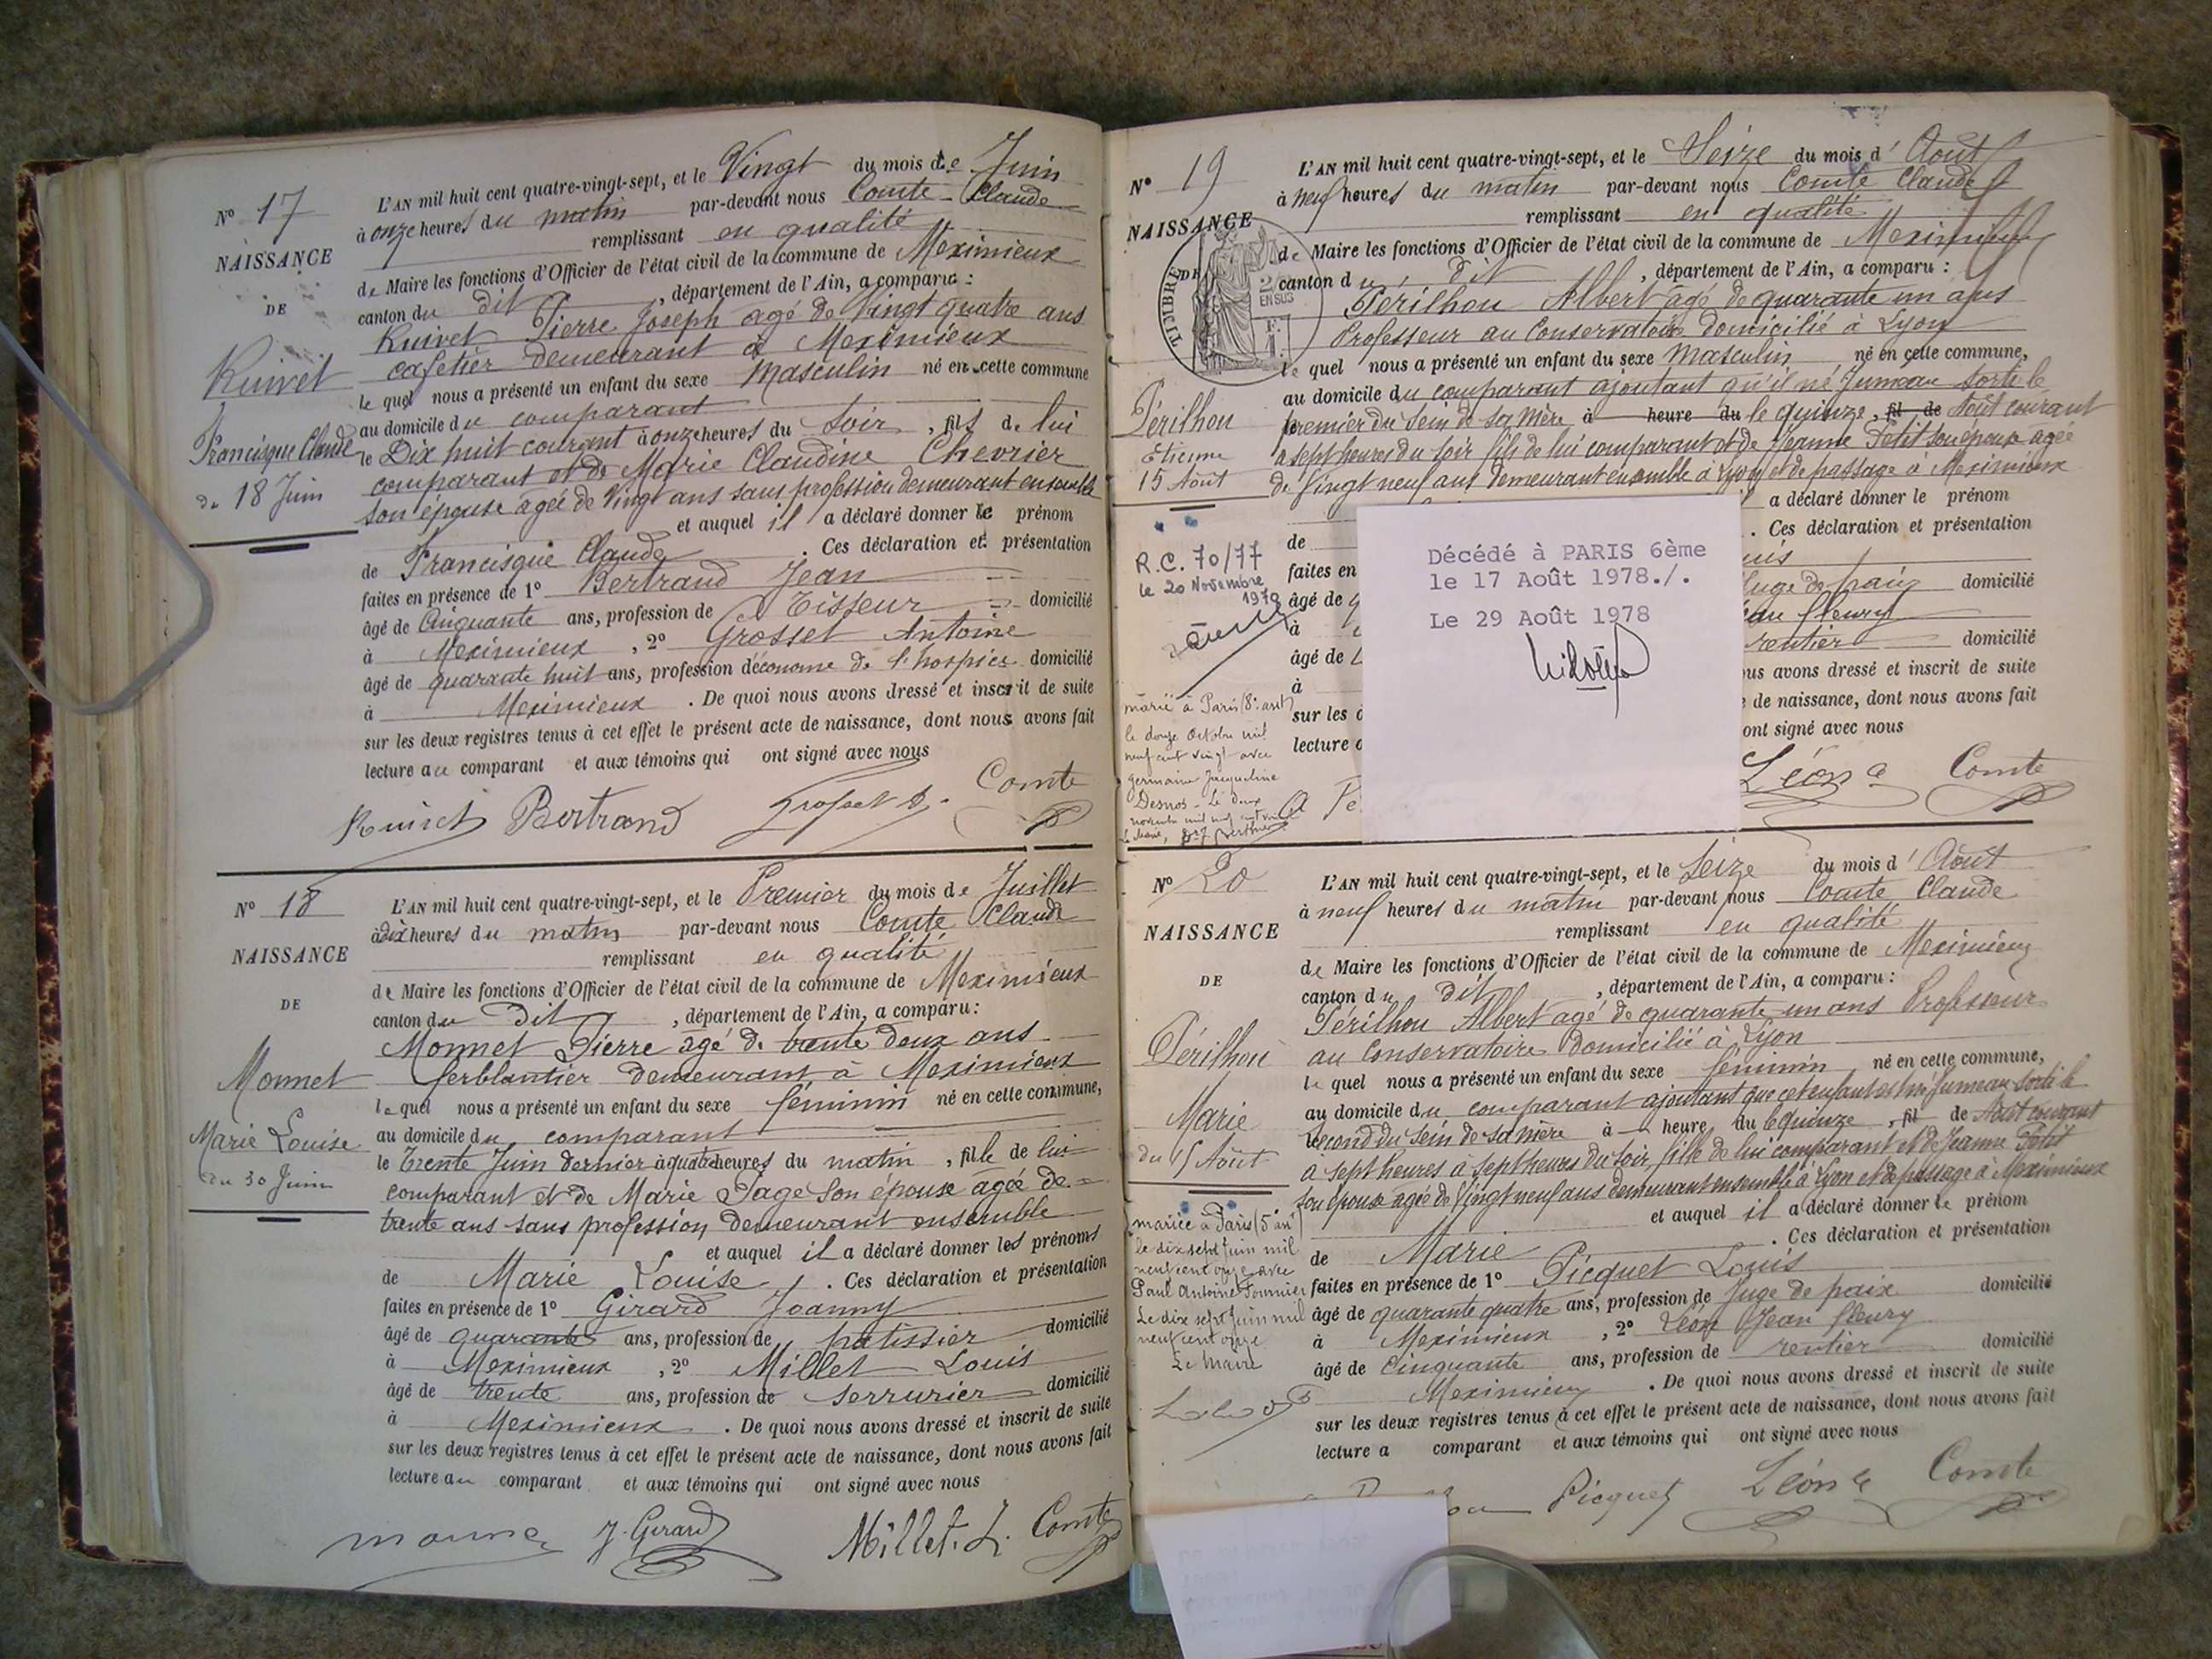 N° 17
NAISSANCE
DE
Ruivet
Francisque Claude
du 18 Juin
L'AN mil huit cent quatre-vingt-sept, et le Vingt du mois de Juin
à onze heures du matin par-devant nous Comte Claude
remplissant en qualité
de Maire les fonctions d'Officier de l'état civil de la commune de Meximieux
canton du dit, département de l'Ain, a comparu :
Ruivet Pierre Joseph âgé de Vingt quatre ans
cafetier demeurant à Meximieux
le quel nous a présenté un enfant du sexe Masculin né en cette commune
au domicile du comparant
le Dix huit courant à onze heures du soir, fils de lui
comparant et de Marie Claudine Chevrier
son épouse âgée de Vingt ans sans profession demeurant ensemble
et auquel il a déclaré donner le prénom
de Francisque Claude. Ces déclaration et présentation
faites en présence de 1° Bertrand Jean
âgé de Cinquante ans, profession de Tisseur domicilié
à Meximieux, 2° Grosset Antoine
âgé de quarante huit ans, profession d'économe de l'hospice domicilié
à Meximieux. De quoi nous avons dressé et inscrit de suite
sur les deux registres tenus à cet effet le présent acte de naissance, dont nous avons fait
lecture au comparant et aux témoins qui ont signé avec nous
Ruivet Bertrand Grosset A. Comte
N° 18
NAISSANCE
DE
Monnet
Marie Louise
du 30 Juin
L'AN mil huit cent quatre-vingt-sept, et le Premier du mois de Juillet
à dix heures du matin par-devant nous Comte Claude
remplissant en qualité
de Maire les fonctions d'Officier de l'état civil de la commune de Meximieux
canton du dit, département de l'Ain, a comparu :
Monnet Pierre âgé de trente deux ans
ferblantier demeurant à Meximieux
le quel nous a présenté un enfant du sexe féminin né en cette commune,
au domicile du comparant
le trente Juin dernier à quatre heures du matin, fille de lui
comparant et de Marie Sage son épouse âgée de
trente ans sans profession demeurant ensemble
et auquel il a déclaré donner les prénoms
de Marie Louise. Ces déclaration et présentation
faites en présence de 1° Girard Joanny
âgé de quarante ans, profession de patissier domicilié
à Meximieux, 2° Millet Louis
âgé de trente ans, profession de serrurier domicilié
à Meximieux. De quoi nous avons dressé et inscrit de suite
sur les deux registres tenus à cet effet le présent acte de naissance, dont nous avons fait
lecture au comparant et aux témoins qui ont signé avec nous
J. Girard Millet. L. Comte
N° 19
NAISSANCE
DE
TIMBRE
2/10 EN SUS
Périlhou
Etienne
15 Août
R.C. 70/77
le 20 Novembre
1970
marié à Paris (8e arrt)
le douze Octobre mil
neuf cent vingt avec
germaine Jacqueline
Desnos - Le deux
novembre mil neuf cent vingt
Le Maire,
L'AN mil huit cent quatre-vingt-sept, et le Seize du mois d'Août
à neuf heures du matin par-devant nous Comte Claude
remplissant en qualité
de Maire les fonctions d'Officier de l'état civil de la commune de Meximieux
canton du dit, département de l'Ain, a comparu :
Périlhou Albert âgé de quarante un ans
Professeur au Conservatoire domicilié à Lyon
le quel nous a présenté un enfant du sexe Masculin né en cette commune,
au domicile du comparant ajoutant qu'il né Jumeau sorti le
premier du sein de sa mère à heure du le quinze, fil de Août courant
à sept heures du soir fils de lui comparant et de Jeanne Petit son épouse agée
de Vingt neuf ans demeurant ensemble à Lyon et de passage à Meximieux
a déclaré donner le prénom
de . Ces déclaration et présentation
faites en
juge de paix domicilié
âgé de
à
rentier domicilié
âgé de
à avons dressé et inscrit de suite
sur les de naissance, dont nous avons fait
lecture ont signé avec nous
Léon Comte
Décédé à PARIS 6ème
le 17 Août 1978./.
Le 29 Août 1978
N° 20
NAISSANCE
DE
Périlhou
Marie
du 15 Août
mariée à Paris (5e arrt)
le dix sept Juin mil
neuf cent onze avec
Paul Antoine Fournier
Le dix sept Juin mil
neuf cent onze
Le Maire
L'AN mil huit cent quatre-vingt-sept, et le Seize du mois d'Août
à neuf heures du matin par-devant nous Comte Claude
remplissant en qualité
de Maire les fonctions d'Officier de l'état civil de la commune de Meximieux
canton du dit, département de l'Ain, a comparu :
Périlhou Albert agé de quarante un ans Professeur
au Conservatoire domicilié à Lyon
le quel nous a présenté un enfant du sexe féminin né en cette commune,
au domicile du comparant ajoutant que cet enfant est né jumeau sorti le
second du sein de sa mère à heure du le quinze, fil de Août courant
à sept heures à sept heures du soir, fille de lui comparant et de Jeanne Petit
son épouse agée de Vingt neuf ans demeurant ensemble à Lyon et de passage à Meximieux
et auquel il a déclaré donner le prénom
de Marie. Ces déclaration et présentation
faites en présence de 1° Picquet Louis
âgé de quarante quatre ans, profession de Juge de paix domicilié
à Meximieux, 2° Léon Jean fleury
âgé de Cinquante ans, profession de rentier domicilié
Meximieux. De quoi nous avons dressé et inscrit de suite
sur les deux registres tenus à cet effet le présent acte de naissance, dont nous avons fait
lecture a comparant et aux témoins qui ont signé avec nous
Picquet Léon Comte